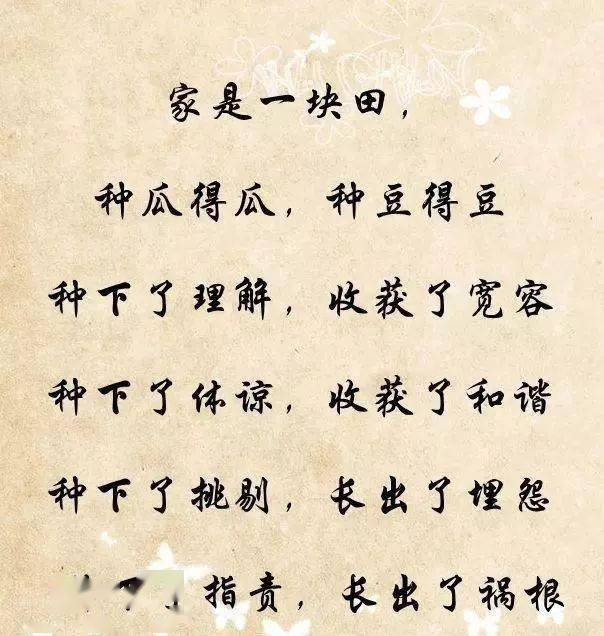 家是一块田，
种瓜得瓜，种豆得豆
种下了理解，收获了宽容
种下了体谅，收获了和谐
种下了挑剔，长出了埋怨
下了指责，长出了祸根